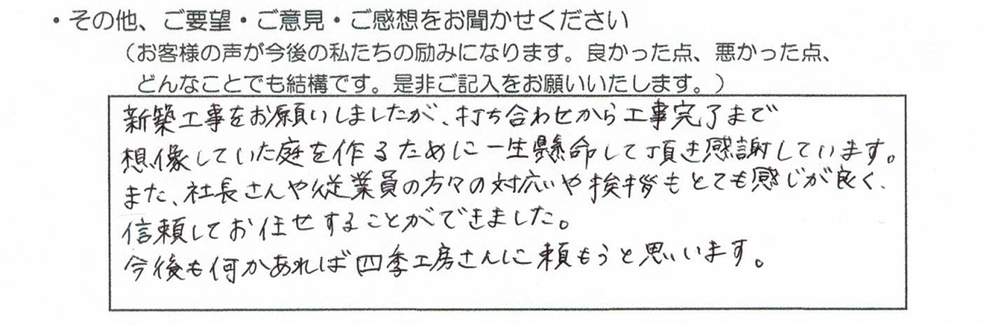 ・その他、ご要望・ご意見・ご感想をお聞かせください
（お客様の声が今後の私たちの励みになります。良かった点、悪かった点、
どんなことでも結構です。是非ご記入をお願いいたします。）
新築工事をお願いしましたが、打ち合わせから工事完了まで
想像していた庭を作るために一生懸命して頂き感謝しています。
また、社長さんや従業員の方々の対応や挨拶もとても感じが良く、
信頼してお任せすることができました。
今後も何かあれば四季工房さんに頼もうと思います。